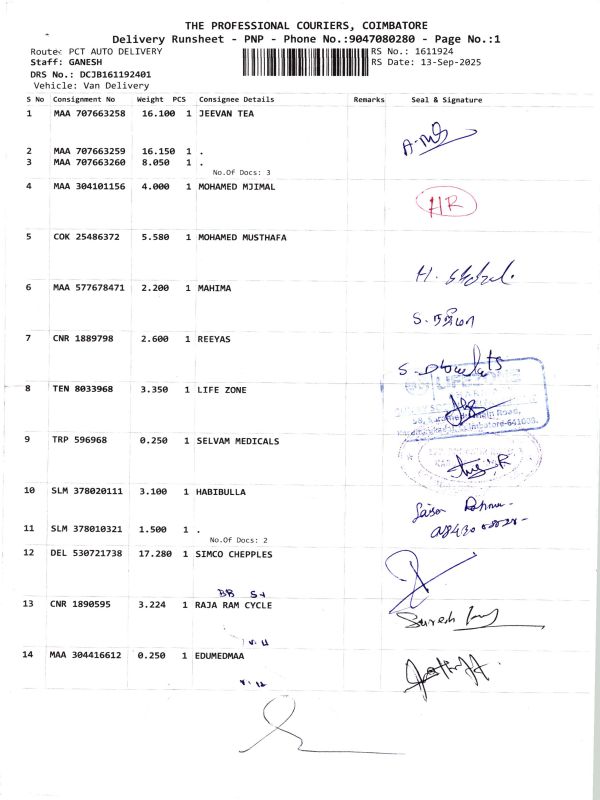 THE PROFESSIONAL COURIERS, COIMBATORE
Delivery Runsheet - PNP - Phone No.:9047080280 - Page No.:1
Route: PCT AUTO DELIVERY RS No.: 1611924
Staff: GANESH RS Date: 13-Sep-2025
DRS No.: DCJB161192401
Vehicle: Van Delivery
S No Consignment No Weight PCS Consignee Details Remarks Seal & Signature
1 MAA 707663258 16.100 1 JEEVAN TEA
2 MAA 707663259 16.150 1 .
3 MAA 707663260 8.050 1 .
No.Of Docs: 3
4 MAA 304101156 4.000 1 MOHAMED MJIMAL
HR
5 COK 25486372 5.580 1 MOHAMED MUSTHAFA
6 MAA 577678471 2.200 1 MAHIMA
7 CNR 1889798 2.600 1 REEYAS
8 TEN 8033968 3.350 1 LIFE ZONE
9 TRP 596968 0.250 1 SELVAM MEDICALS
10 SLM 378020111 3.100 1 HABIBULLA
11 SLM 378010321 1.500 1 .
No.Of Docs: 2
12 DEL 530721738 17.280 1 SIMCO CHEPPLES
13 CNR 1890595 3.224 1 RAJA RAM CYCLE
Suresh
14 MAA 304416612 0.250 1 EDUMEDMAA